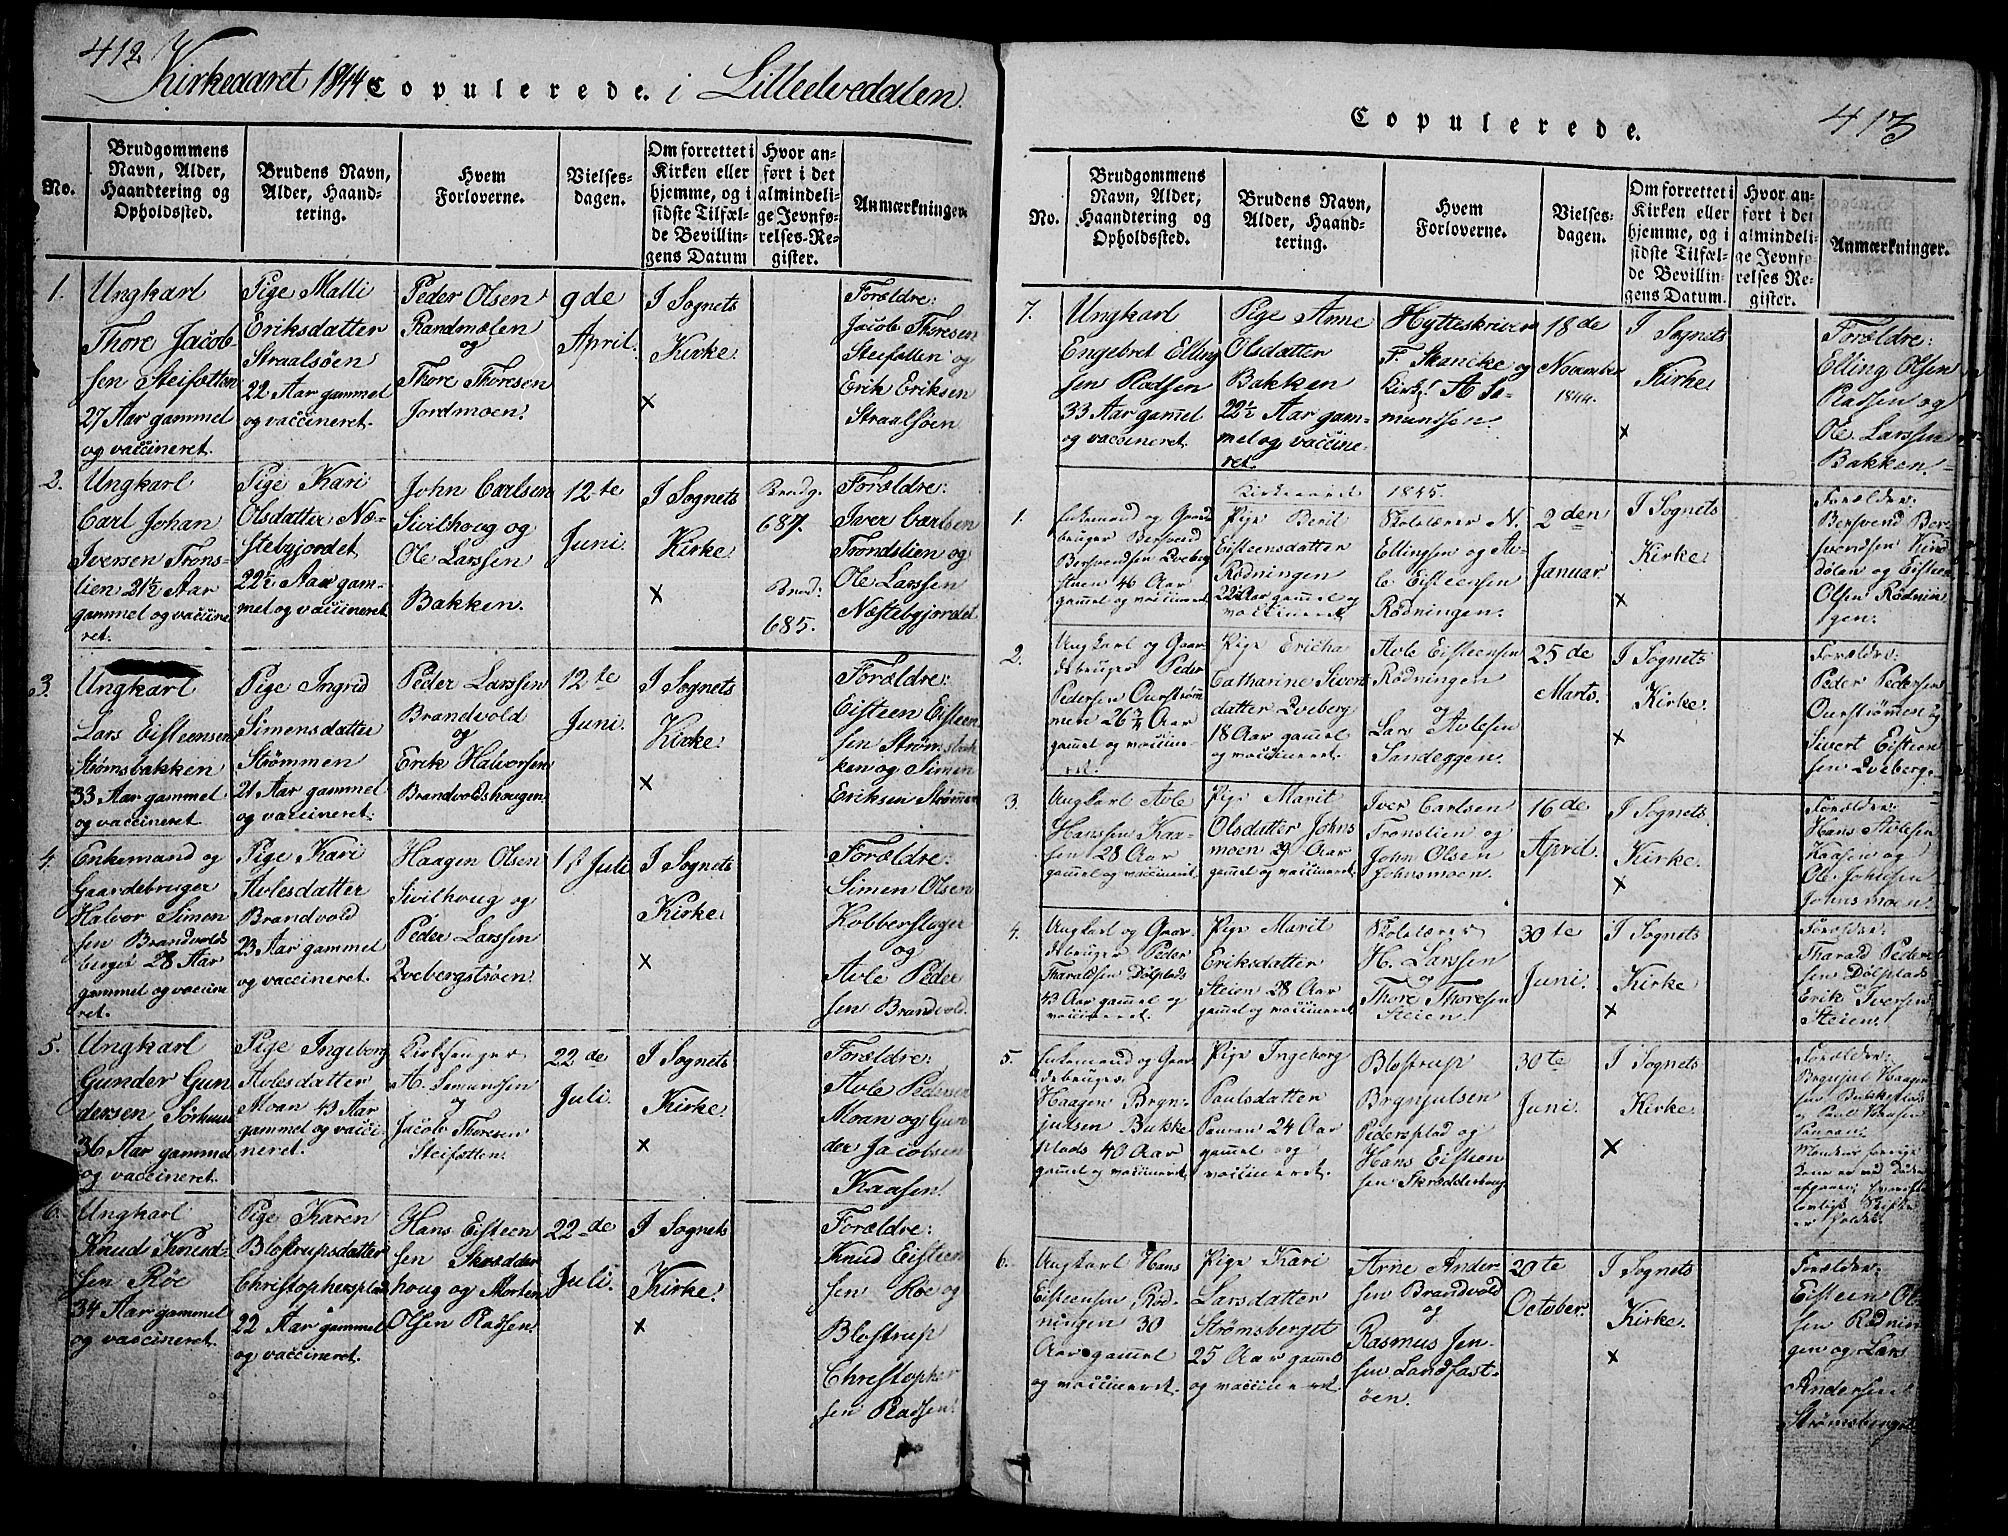 412
Kirkeaaret 1844 Copulerede. i Lilleelvedalen
No.
Brudgommens
Navn, Alder,
Haandtering og
Opholdssted.
Brudens Navn,
Alder, Haand-
tering.
Hvem
Forloverne.
Vielses-
dagen.
Om forrettet i
Kirken eller
hjemme, og i
sidste Tilfæl-
de Bevillin-
gens Datum
Hvor an-
ført i det
almindeli-
ge Jevnfø-
relses-Re-
gister.
Anmærkninger.
1.
Ungkarl
Thore Jacob-
sen Steifotten
27 Aar gammel
og vaccineret.
Pige Malli
Eriksdatter
Straalsøen
22 Aar gammel
og vaccineret.
Peder Olsen
Randmælen
og
Thore Thoresen
Jordmoen.
9de
April.
I Sognets
Kirke.
×
Forældre:
Jacob Thoresen
Steifotten og
Erik Eriksen
Straalsøen
2.
Ungkarl
Carl Johan
Iversen Trons-
lien 21½ Aar
gammel og vaccine
ret.
Pige Kari
Olsdatter Næ-
stebyjordet
22½ Aar gam-
mel og vaccineret
John Carlsen
Sivilhoug og
Ole Larssen
Bakken.
12te
Juni.
I Sognets
Kirke
×
Brudg.
687.
Brud:
685.
Forældre:
Iver Carlsen
Trondslien og
Ole Larssen
Næstebyjordet
3.
Ungkarl
Lars Eisteensen
Strømsbakken
33 Aar gammel
og vaccineret
Pige Ingrid
Simensdatter
Strømmen
21 Aar gammel
og vaccineret.
Peder Larssen
Brandvold
og
Erik Halvorsen
Brandvoldshougen
12te
Juni.
I Sognets
Kirke.
×
Forældre:
Eisteen Eisteen
sen Strømsbak
ken og Simen
Eriksen Strømmen
4.
Enkemand og
Gaardebruger
Halvor Simen
sen Brandvolds
berget 28 Aar
gammel og vaccine
ret.
Pige Kari
Avlesdatter
Brandvold
23 Aar gammel
og vaccineret.
Haagen Olsen
Sivilhoug og
Peder Larssen
Qvebergstrøen
1st Juli
I Sognets
Kirke
×
Forældre:
Simen Olsen
Kobberslager
og
Avle Peder
sen Brandvold.
5.
Ungkarl
Gunder Gun
dersen Sørhuus
36 Aar gammel
og vaccineret.
Pige Ingeborg
Avlesdatter
Moan 43 Aar
gammel og vacci-
neret.
Kirkesanger
A. Semundsen
og
Jacob Thoresen
Steifotten.
22de
Juli.
I Sognets
Kirke
×
Forældre:
Avle Pedersen
Moan og Gun
der Jacobsen
Kaasen.
6.
Ungkarl
Knud Knud-
sen Røe
34 Aar gammel
og vaccineret.
Pige Karen
Blostrupsdatter
Christophersplad
22 Aar gammel
og vaccineret.
Hans Eisteen
sen Skrædder
houg og Morten
Olsen Plassen
22de
Juli.
I Sognets
Kirke.
×
Forældre:
Knud Eisteen
sen Røe og
Blostrup
Christopher
sen Pladsen.
Copulerede.
413
No.
Brudgommens
Navn, Alder,
Haandtering og
Opholdssted.
Brudens Navn,
Alder, Haand-
tering.
Hvem
Forloverne.
Vielses-
dagen.
Om forrettet i
Kirken eller
hjemme, og i
sidste Tilfæl-
de Bevillin-
gens Datum.
Hvor an-
ført i det
almindeli-
ge Jevnfø-
relses Re-
gister.
Anmærkninger.
7.
Ungkarl
Engebret Elling
sen Pladsen
33 Aar gammel
og vaccineret.
Pige Anne
Olsdatter
Bakken
22½ Aar gam-
mel og vaccine-
ret.
Hytteskriver
F. Skancke og
Kirks. A Se-
mundsen
18de
November
1844.
I Sognets
Kirke
×
Forældre:
Elling Olsen
Pladsen og
Ole Larssen
Bakken.
Kirkeaaret 1845.
1.
Enkemand og Gaard
bruger Bersvend
Bersvendsen Qveberg
støen 46 Aar
gammel og vaccineret
Pige Beril
Eisteensdatter
Rødningen
22 Aar gammel og
vaccineret
Skolelærer N.
Ellingsen og Av-
le Eisteensen
Rødningen.
2den
Januar.
I Sognets
Kirke.
×
Forælder:
Bersvend Ber-
svendsen Kind
dølen og Eisteen
Olsen Rødnin
gen:
2.
Ungkarl og Gaar
debruger Peder
Pedersen Ourstrøm
men 26¾ Aar
gammel og vaccine-
ret.
Pige Ericha
Catharine Sivert
datter Qveberg
18 Aar gammel
og vaccineret.
Avle Eisteensen
Rødningen
og
Lars Avlesen
Sandeggen.
25de
Marts.
I Sognets
Kirke.
×
Forældre:
Peder Pedersen
Ourstrømmen og
Sivert Eisteen
sen Qveberg.
3.
Ungkarl Avle
Hanssen Kaa-
sen 28 Aar
gammel og vaccineret.
Pige Marit
Olsdatter Johns
moen 29 Aar
gammel og vaccineret.
Iver Carlsen
Tronslien og
John Olsen
Johnsmoen.
16de
April.
I Sognets
Kirke.
×
Forældre:
Hans Avlesen
Kaasen og
Ole Johnsen
Johnsmoen.
4.
Ungkarl og Gaar-
debruger Peder
Tharaldsen Dølplads
43 Aar gammel og
vaccineret.
Pige Marit
Eriksdatter
Steien 28 Aar
gammel og vaccineret
Skolelærer
H. Larssen
og
Thore Thoresen
Steien.
30te
Juni.
I Sognets
Kirke
×
Forældre:
Tharald Peder
sen Dølplads
og
Erik Iversen
Steien.
5.
Enkemand og Gaar
debruger
Haagen Bryn-
julsen Bukke
plads 40 Aar
gammel og vaccineret
Pige Ingeborg
Paulsdatter
24 Aar
gammel og
vaccineret.
Blostrup
Brynjulsen
Pedersplad og
Hans Eisteen
sen Skrædderhoug
30te
Juni.
I Sognets
Kirke.
×
Forælder:
Brynjul Haagen
sen
og Paul
6.
Ungkarl Hans
Eisteensen Rød-
ningen 30
Aar gammel
og vaccineret.
Pige Kari
Larsdatter
Strømsberget
25 Aar gammel
og vaccineret
Arne Ander-
sen Brandvold
og
Rasmus Jen-
sen Landfast-
øen.
20te
October.
I Sognets
Kirke.
×
Forælder:
Eisteen Ol
sen Rødnin
gen og Lars
Andersen
Strømsberget